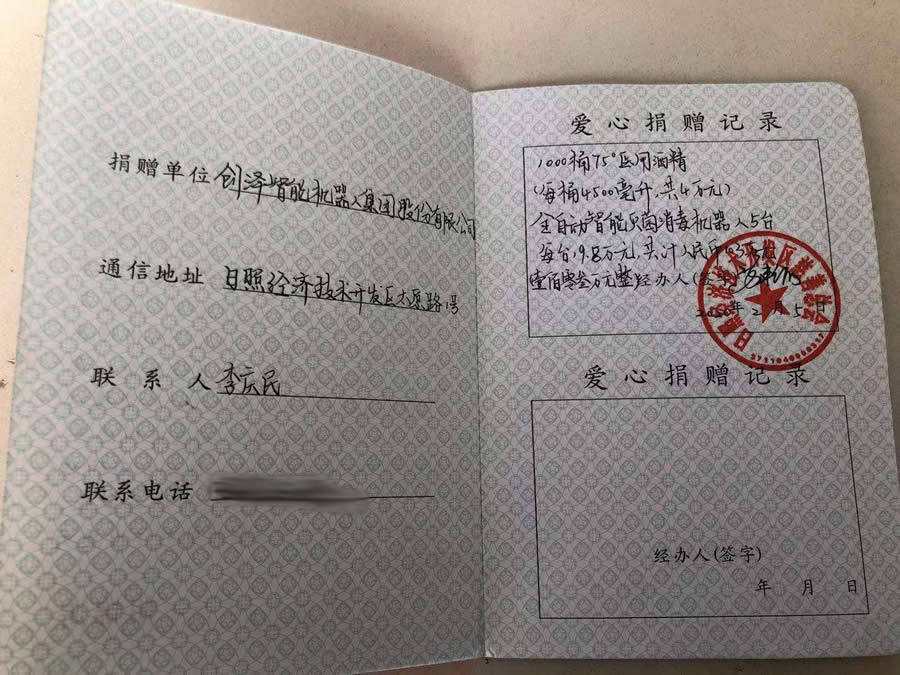 捐赠单位 创泽智能机器人集团股份有限公司
通信地址 日照经济技术开发区太原路71号
联系人 李庆民
联系电话
爱心捐赠记录
1000桶75°医用酒精
(每桶4500毫升,共4万元)
全自动智能灭菌消毒机器人5台
每台19.8万元,共计人民币
壹佰零叁万元整 经办人(签字)
2020年2月5日
爱心捐赠记录
经办人(签字)
年 月 日